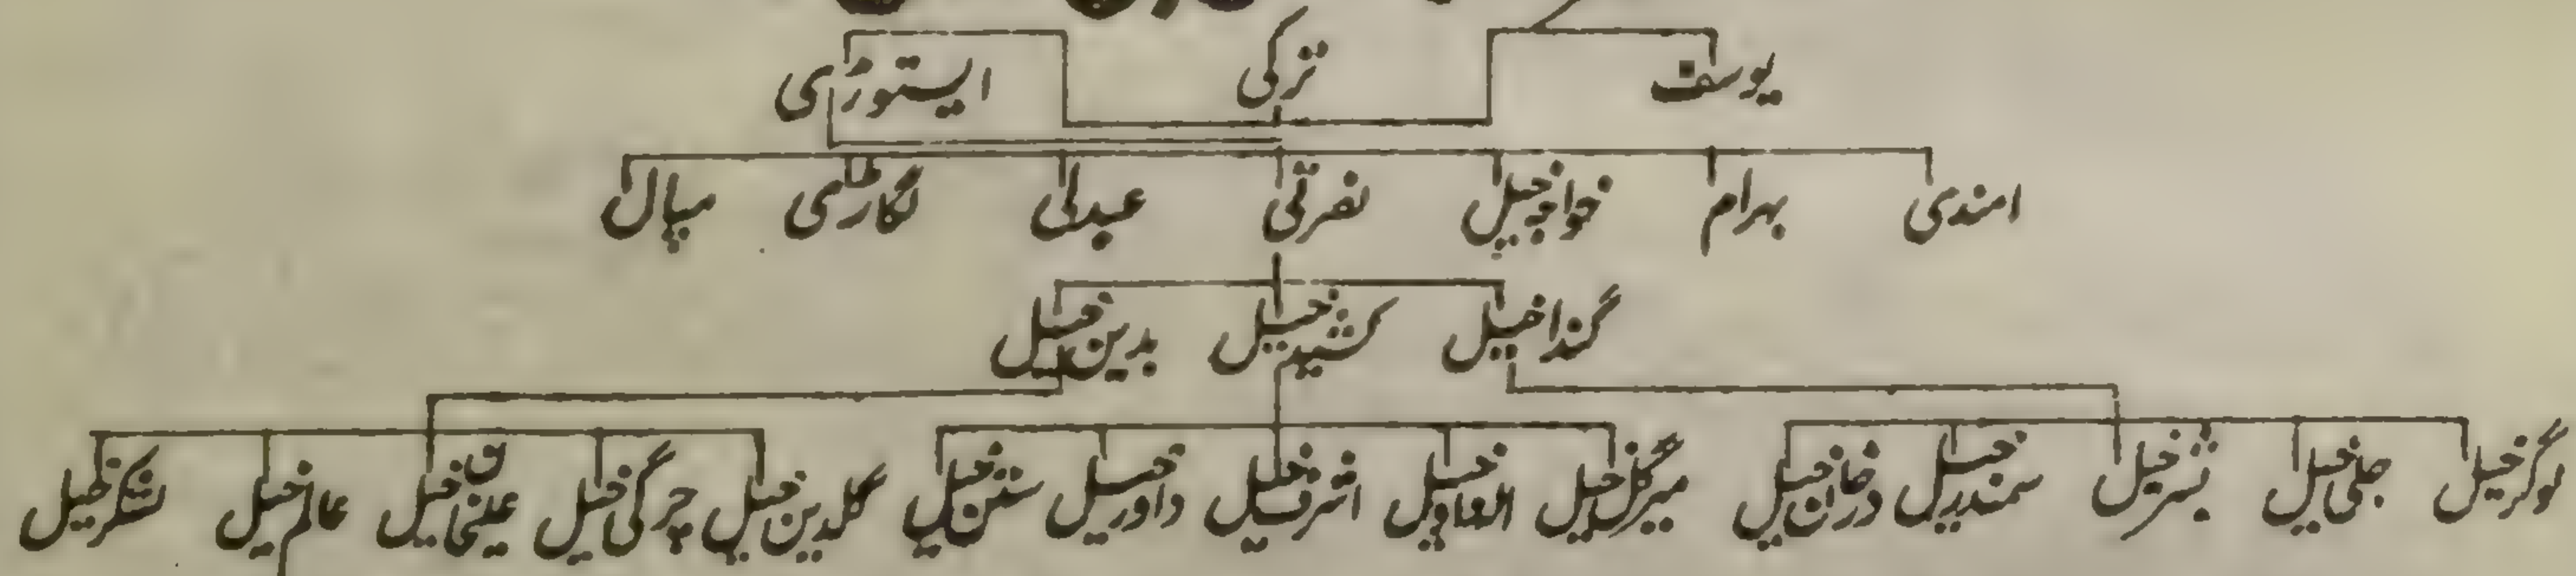 یوسف ترکی ایستوڑی
امندی بہرام خواجہ خیل نصرتی عبدلی میپال
گندا خیل کشید خیل بدین خیل
لوگر خیل جلی خیل بشر خیل سمندر خیل درخان خیل میر گل خیل اشرف خیل داور خیل ستن خیل گلدین خیل چرگی خیل عالم خیل لشکر خیل